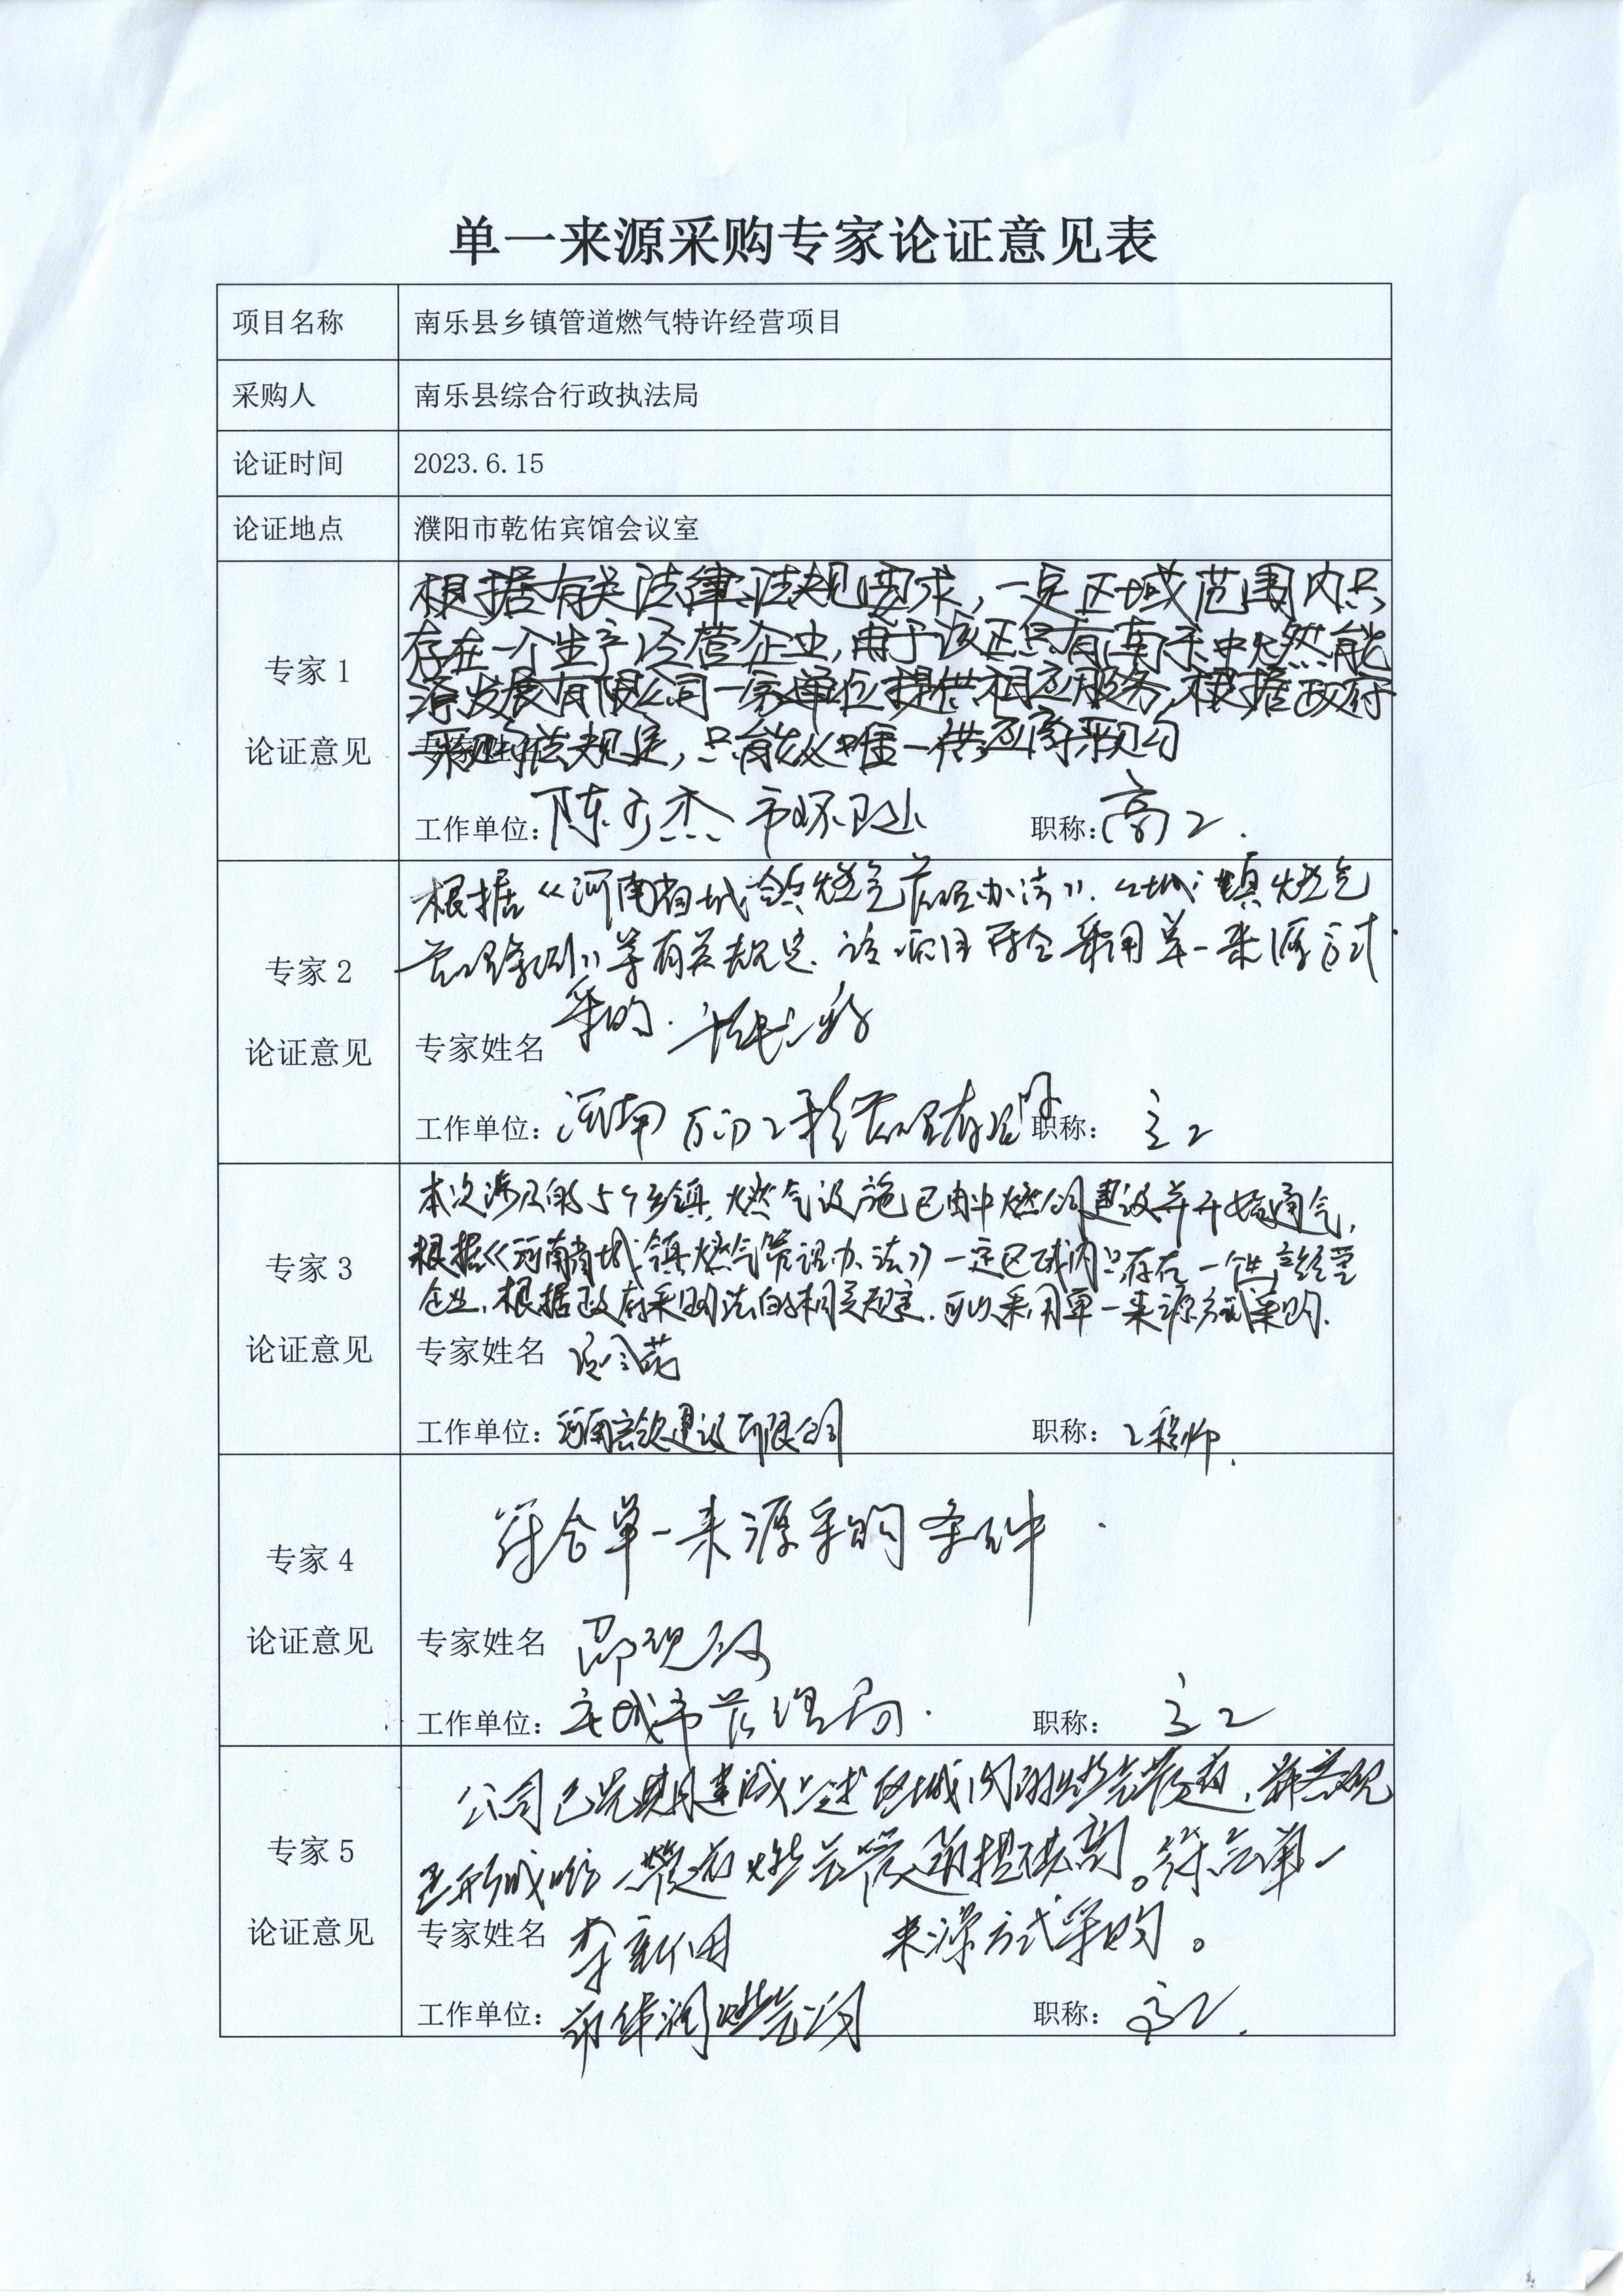 单一来源采购专家论证意见表
项目名称 南乐县乡镇管道燃气特许经营项目
采购人 南乐县综合行政执法局
论证时间 2023.6.15
论证地点 濮阳市乾佑宾馆会议室
专家1
论证意见
根据有关法律、法规要求，一定区域范围内只
存在一个生产经营企业，由于该区只有南乐中燃能
源发展有限公司一家单位提供相应服务，根据政府
采购法规定，只能从唯一供应商采购
工作单位： 陈 杰 市环卫处 职称： 高工.
专家2
论证意见
根据《河南省城镇燃气管理办法》.《城镇燃气
管理条例》等有关规定.该项目符合采用单一来源方式
采购.
专家姓名
工作单位： 河南 工程管理有限公司 职称： 高工
专家3
论证意见
本次涉及的5个乡镇，燃气设施已由中燃公司建设并开始通气，
根据《河南省城镇燃气管理办法》一定区域内只存在一个生产经营
企业，根据政府采购法的相关规定，可以采用单一来源方式采购.
专家姓名
工作单位： 河南宏 建设有限公司 职称： 工程师.
专家4
论证意见
符合单一来源采购条件.
专家姓名 邵
工作单位： 市城市管理局. 职称： 高工
专家5
论证意见
公司已先期建成上述区域内的燃气管道，
已形成 燃气管道 。符合单一
来源方式采购。
专家姓名 李新
工作单位： 华润燃气公司 职称： 高工.